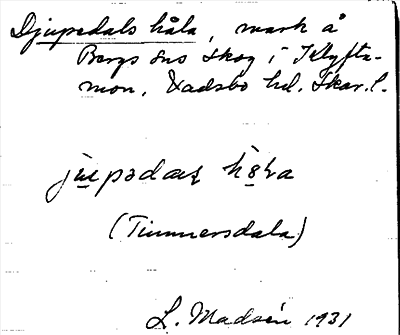 Djupedals håla, mark å
Bergs sns skog i Klyfta-
mon, Vadsbo hd. Skar. l.
(Timmersdala)
L. Madsén 1931